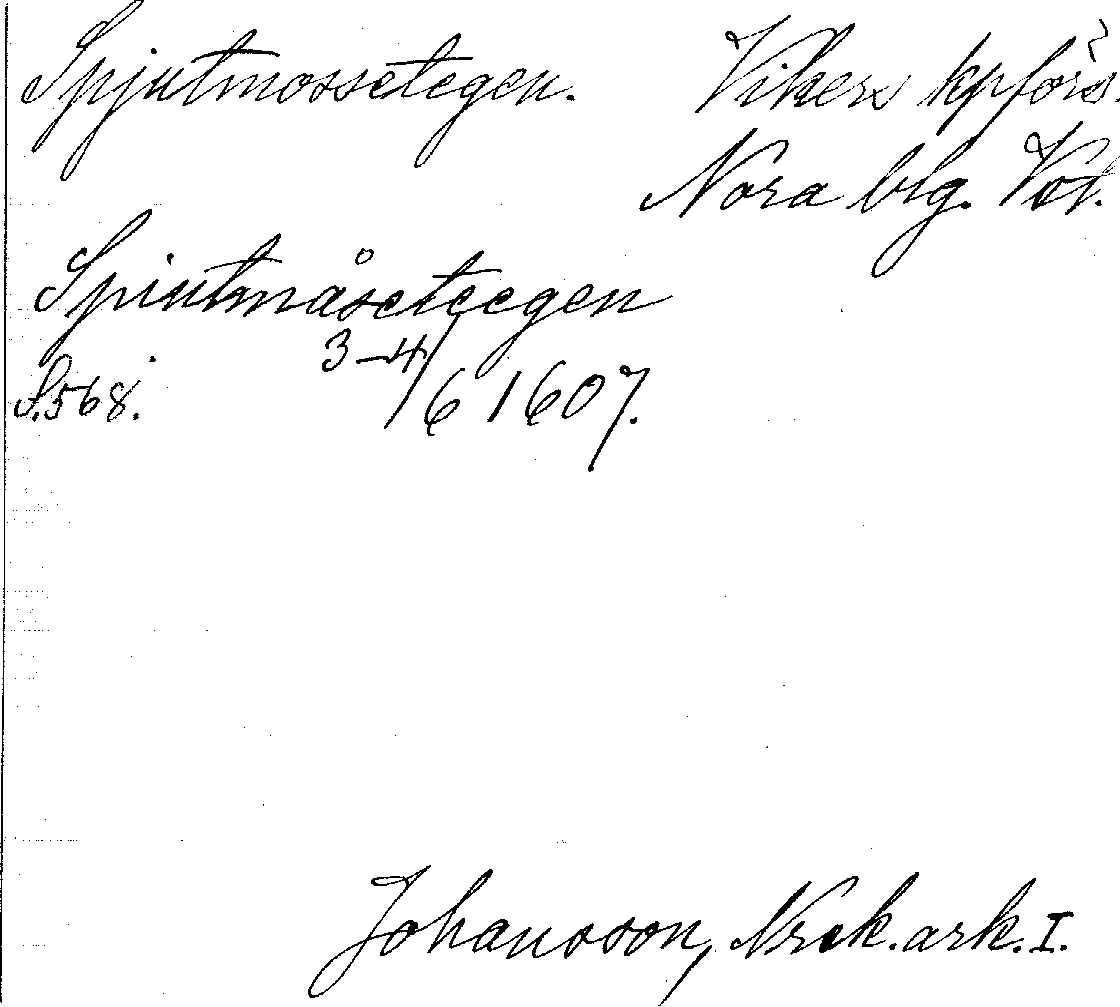 Spjutmossetegen. Vikers kpförs.
Nora blg. Vstl.
Spiutmåseteegen
S. 568. 3-4/6 1607.
Johansson, Nrck. ark. I.